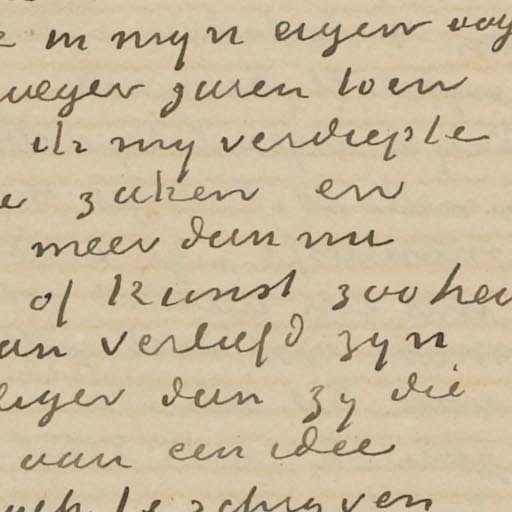 in mijn eigen oog
vroeger jaren toen
ik mij verdiepte
zaken en
meer dan nu
of kunst zoo hee
an verliefd zijn
liger dan zij die
van een idee
te schrijven